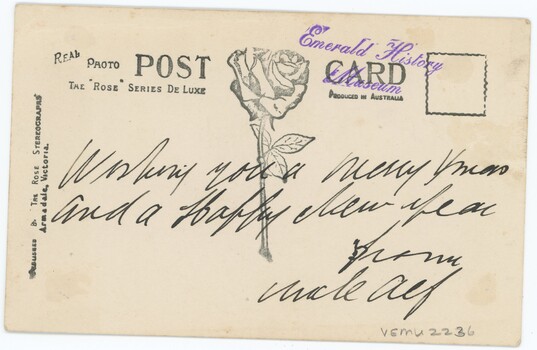 REAL PHOTO POST CARD
THE "ROSE" SERIES DE LUXE
PRODUCED IN AUSTRALIA
Emerald History
Museum
PUBLISHED BY THE ROSE STEREOGRAPHS
Armadale, Victoria.
Wishing you a Merry Xmas
and a Happy New Year
from
Uncle Alf
VEMU2236